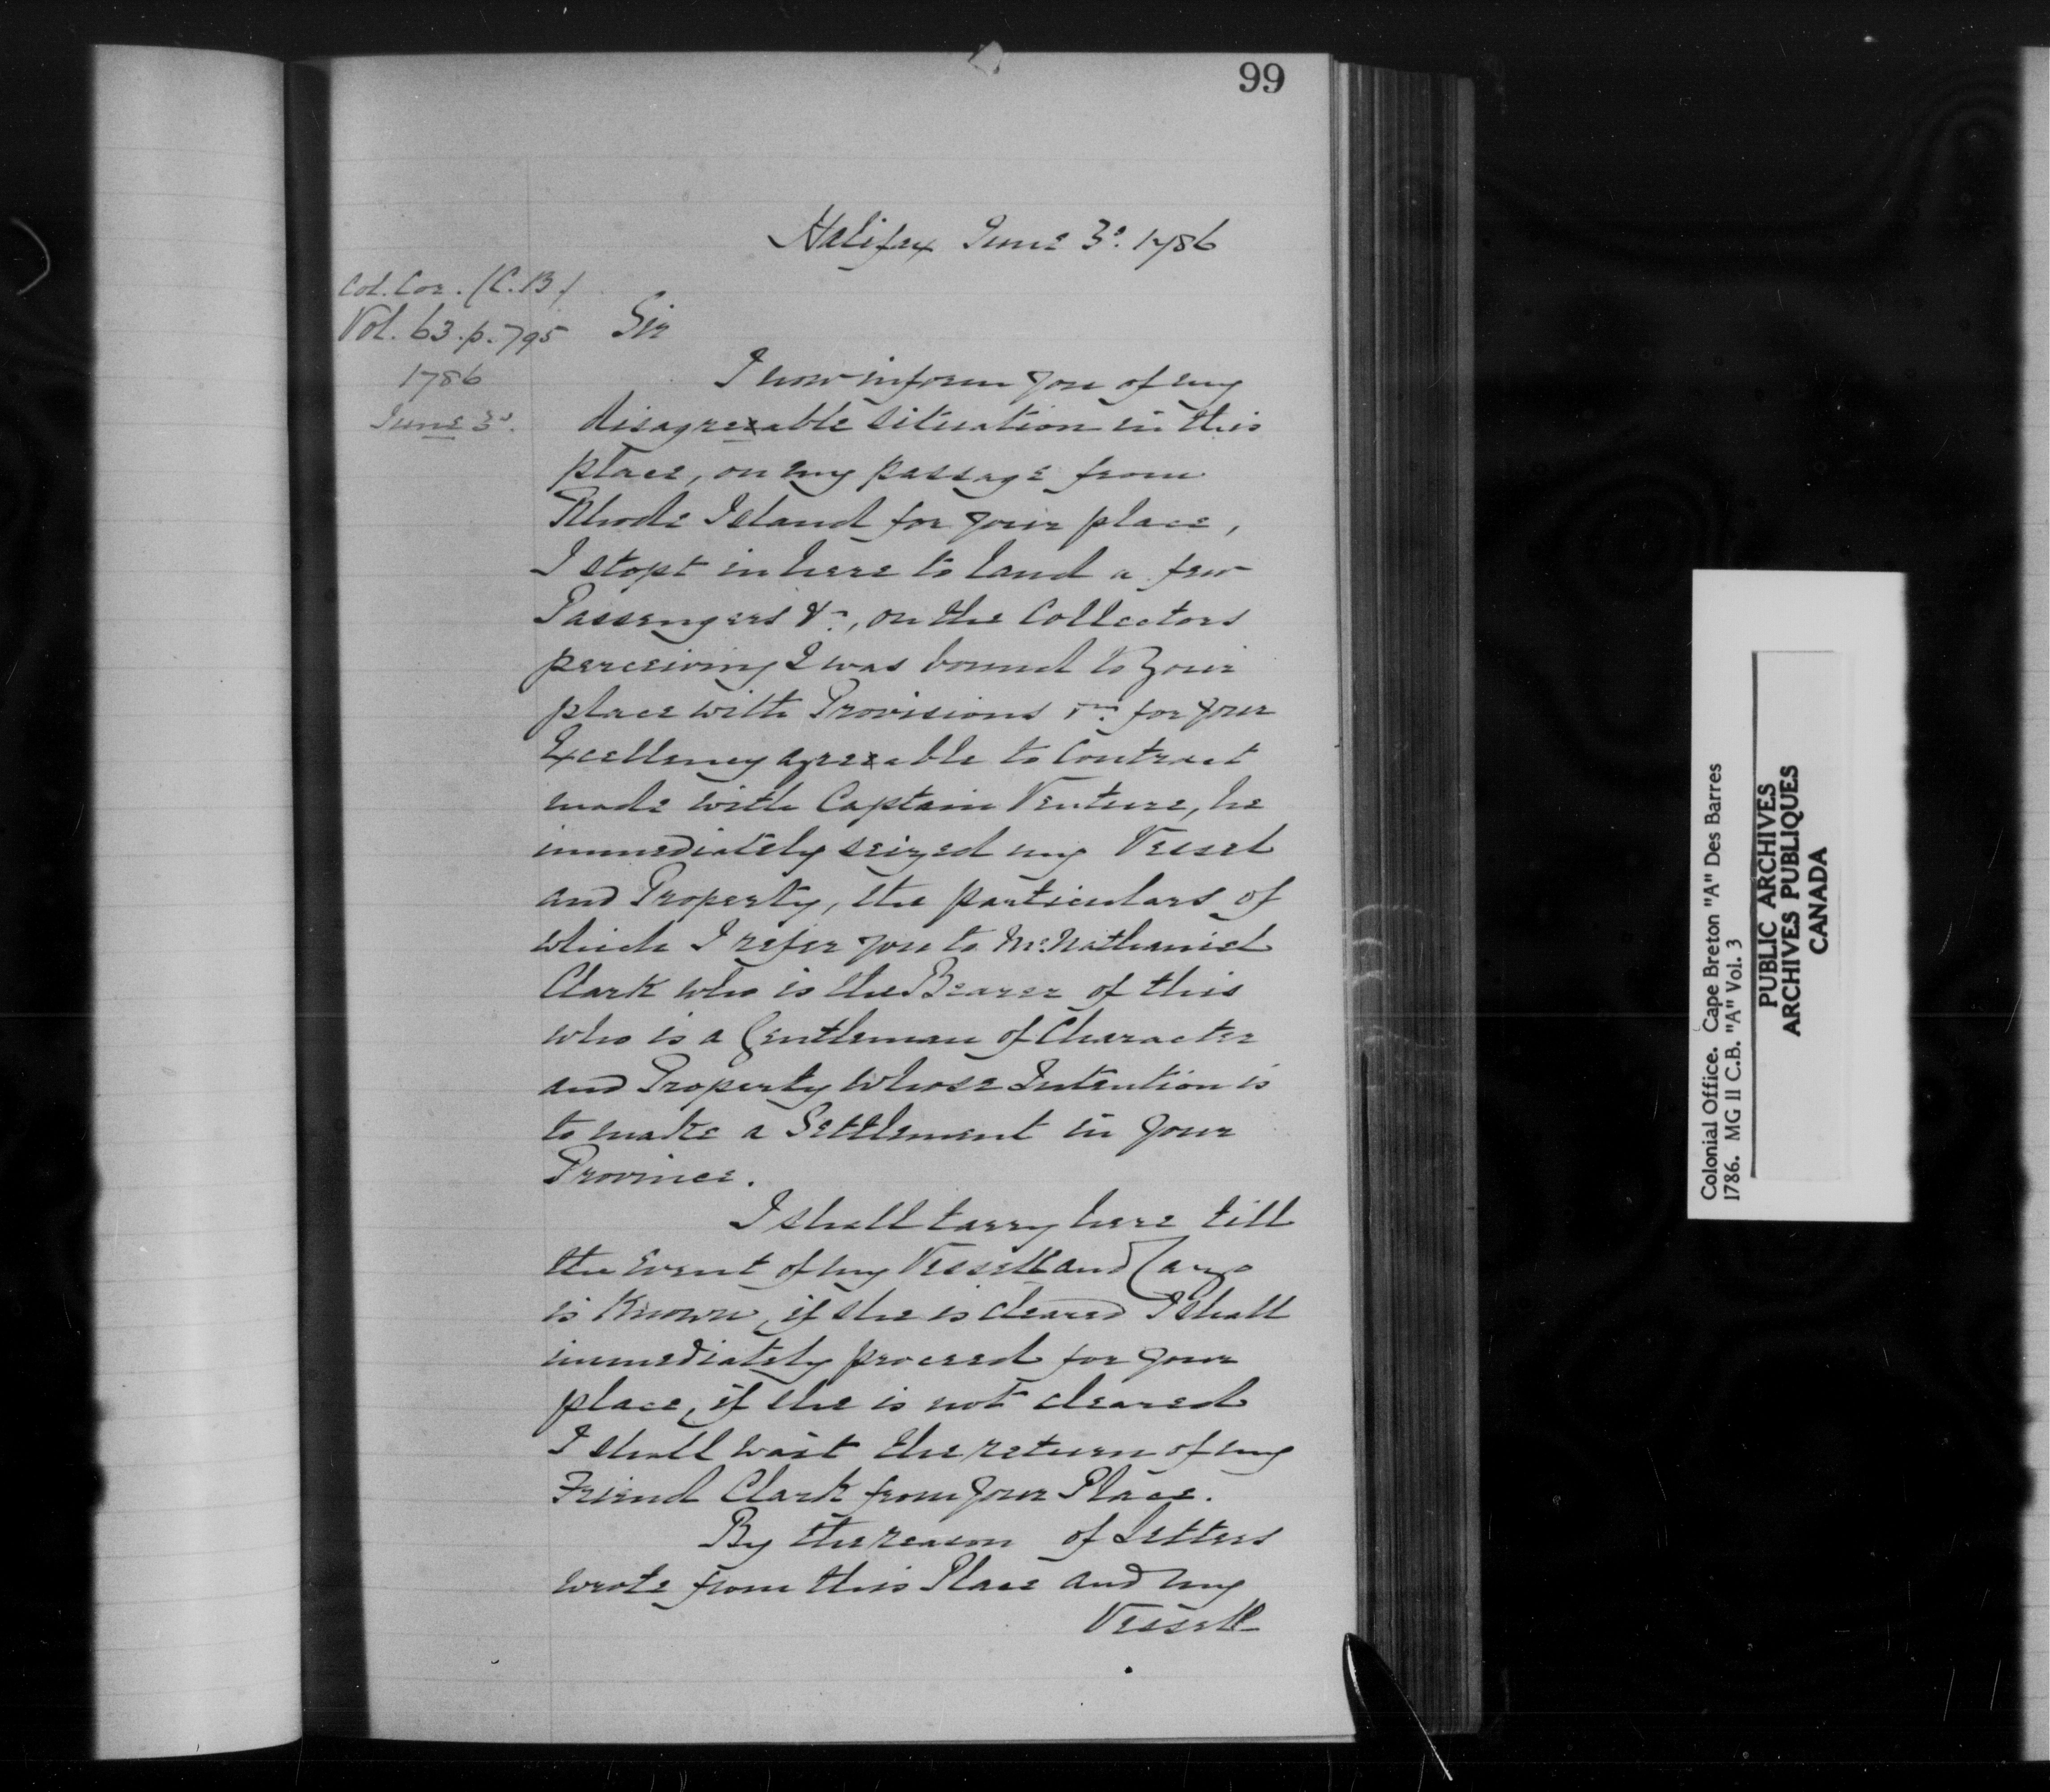 99
Halifax June 3d. 1786
Col. Cor. (C.B.)
Vol. 63. p. 795
1786
June 3d.
Sir
I now inform you of my
disagreeable situation in this
place, on my passage from
Rhode Island for your place,
I stopt in here to land a few
Passengers &c, on the Collectors
perceiving I was bound to your
place with Provisions &c. for your
Excellency agreeable to Contract
made with Captain Venture, he
immediately seized my Vessel
and Property, the particulars of
which I refer you to Mr. Nathaniel
Clark who is the Bearer of this
who is a Gentleman of Character
and Property whose Intention is
to make a Settlement in your
Province.
I shall tarry here till
the event of my Vessell and Cargo
is Known, if she is cleared I shall
immediately proceed for your
place, if she is not cleared
I shall wait the return of my
Friend Clark from your Place.
By the reason of Letters
wrote from this Place and my
Vessell
Colonial Office. Cape Breton "A" Des Barres
1786. MG 11 C.B. "A" Vol. 3
PUBLIC ARCHIVES
ARCHIVES PUBLIQUES
CANADA